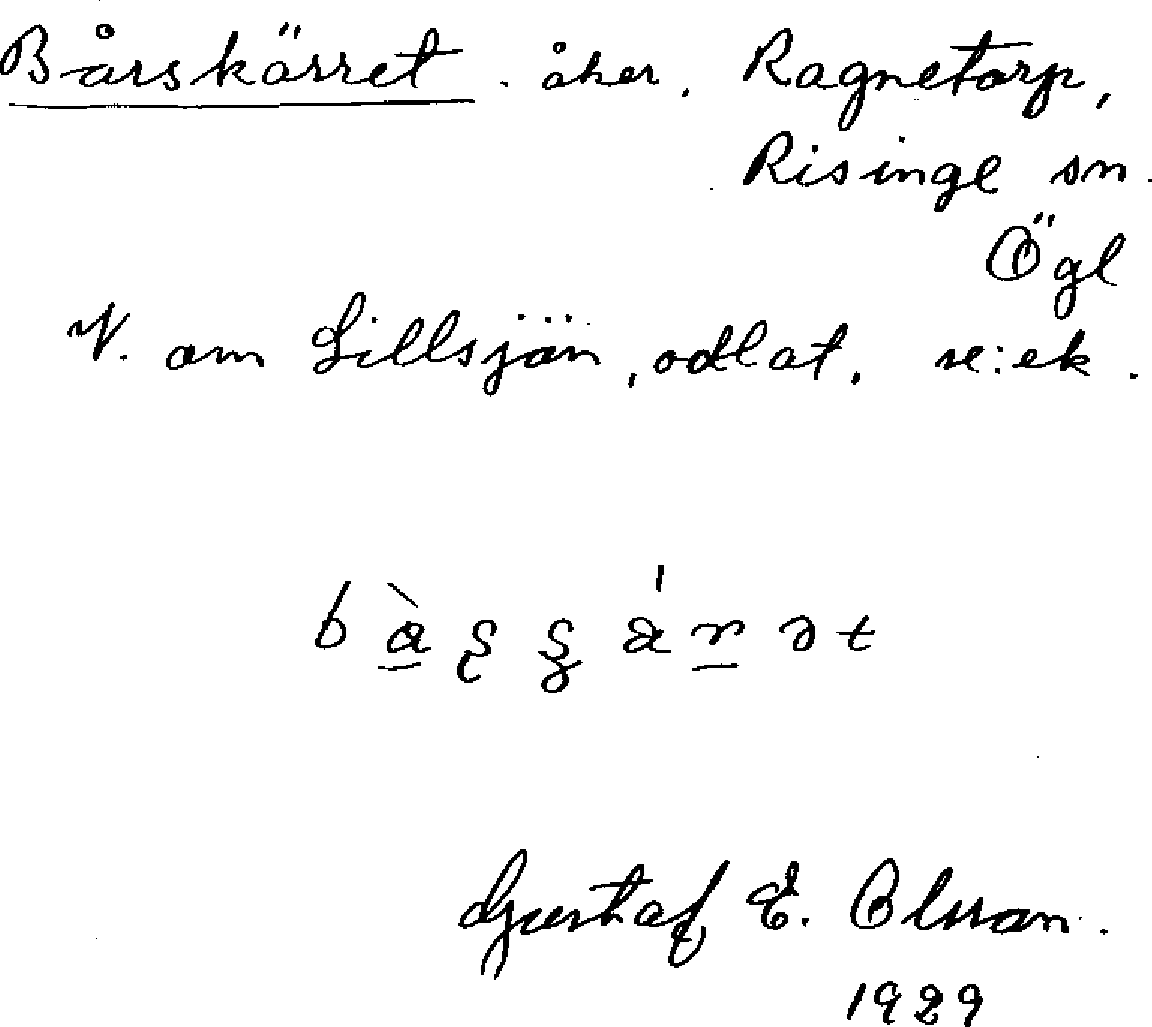 Bårskärret. åker, Ragnetorp,
Risinge sn.
Ögl
V. om Lillsjön, odlat, se: ek.
Gustaf E. Olsson.
1929